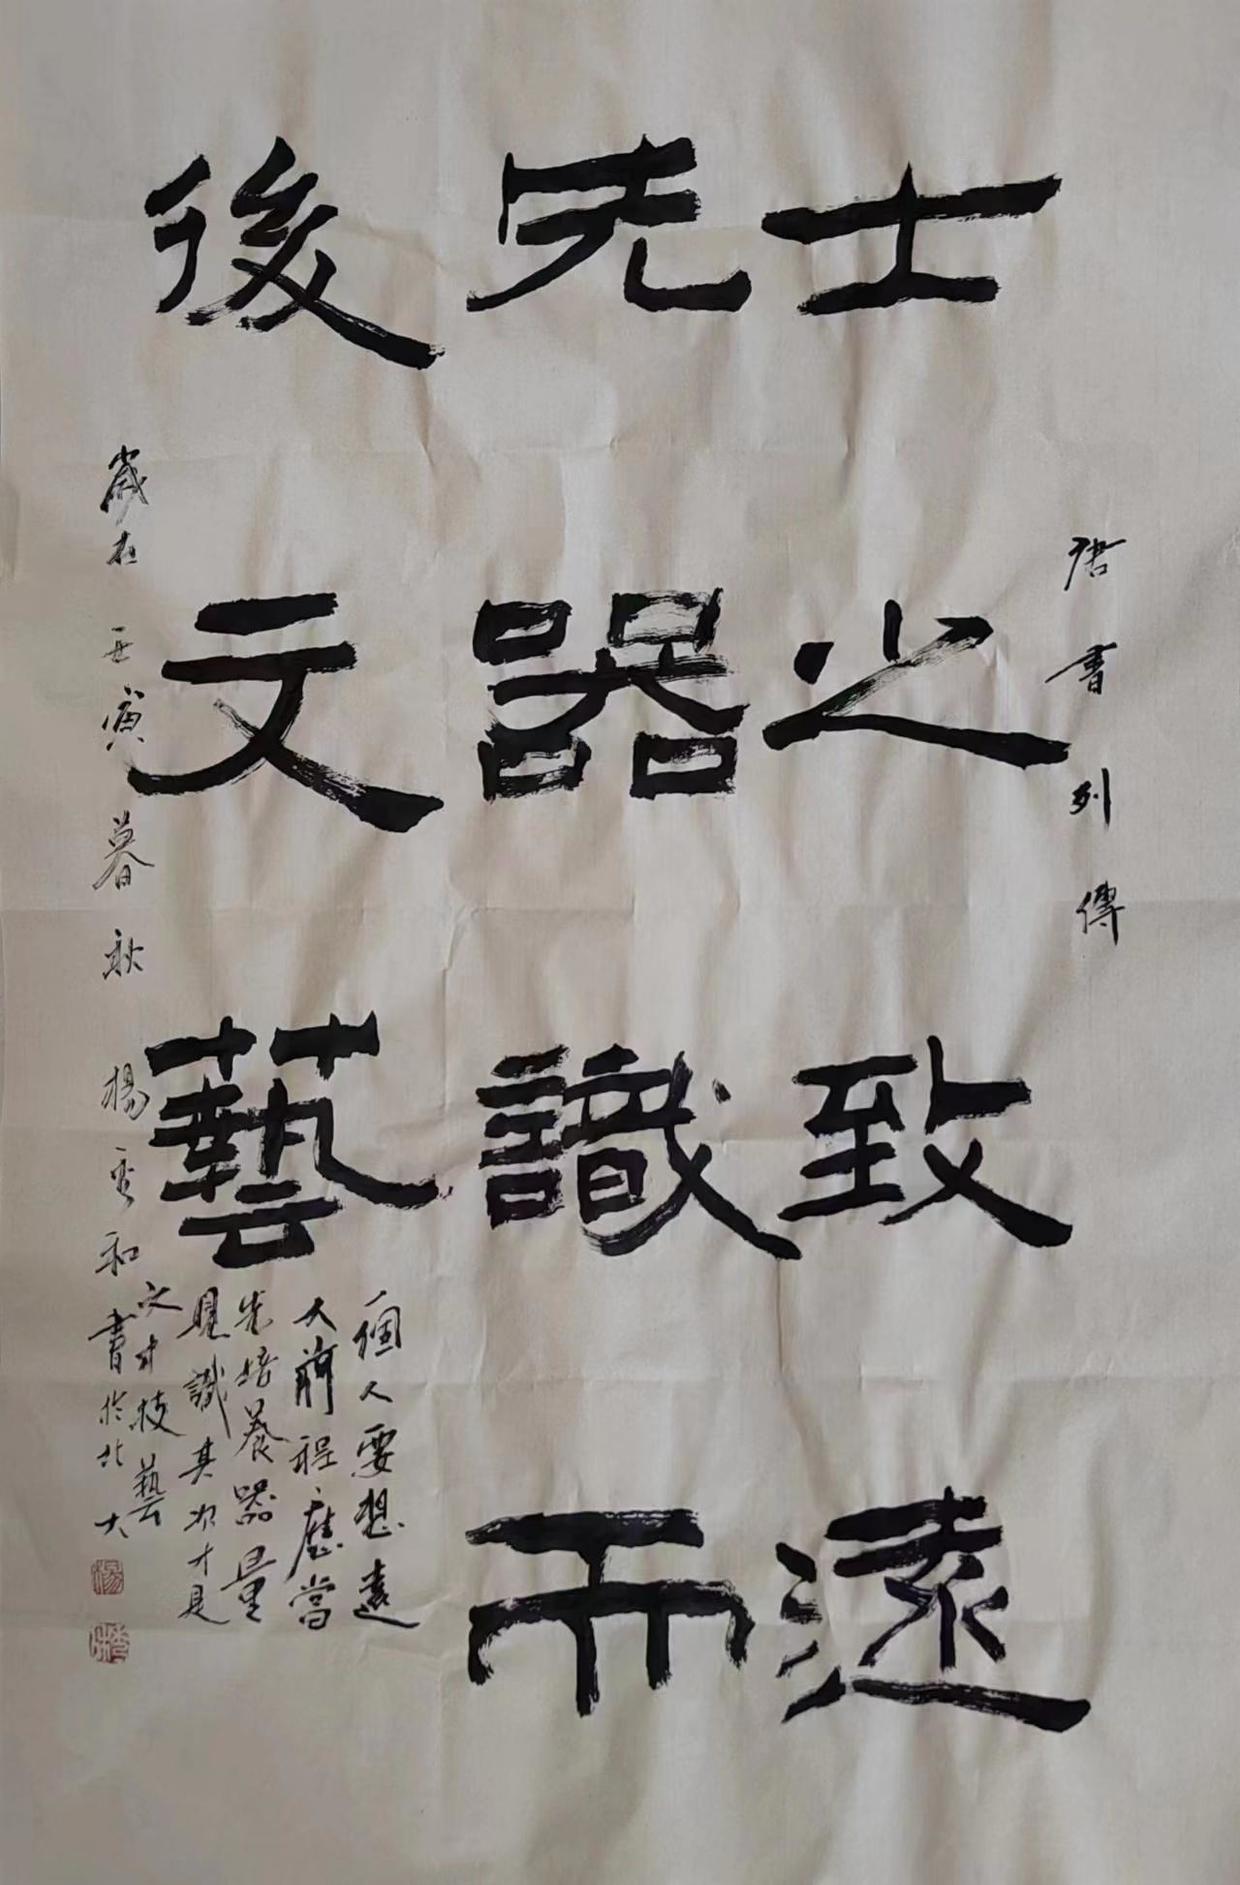 唐書列傳
士之致遠
先器識而
後文藝
一個人要想遠
大前程應當
先培養器量
見識其次才是
文才技藝
歲在壬寅暮秋楊和書於北大